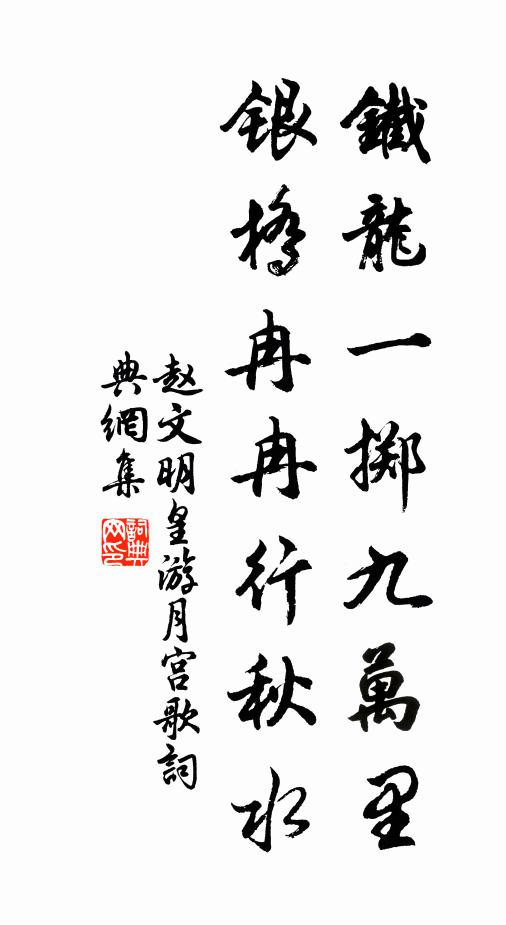 鐵龍一擲九萬里
銀橋冉冉行秋水
赵文明皇游月宫歌詞
典網集
詞典
网印